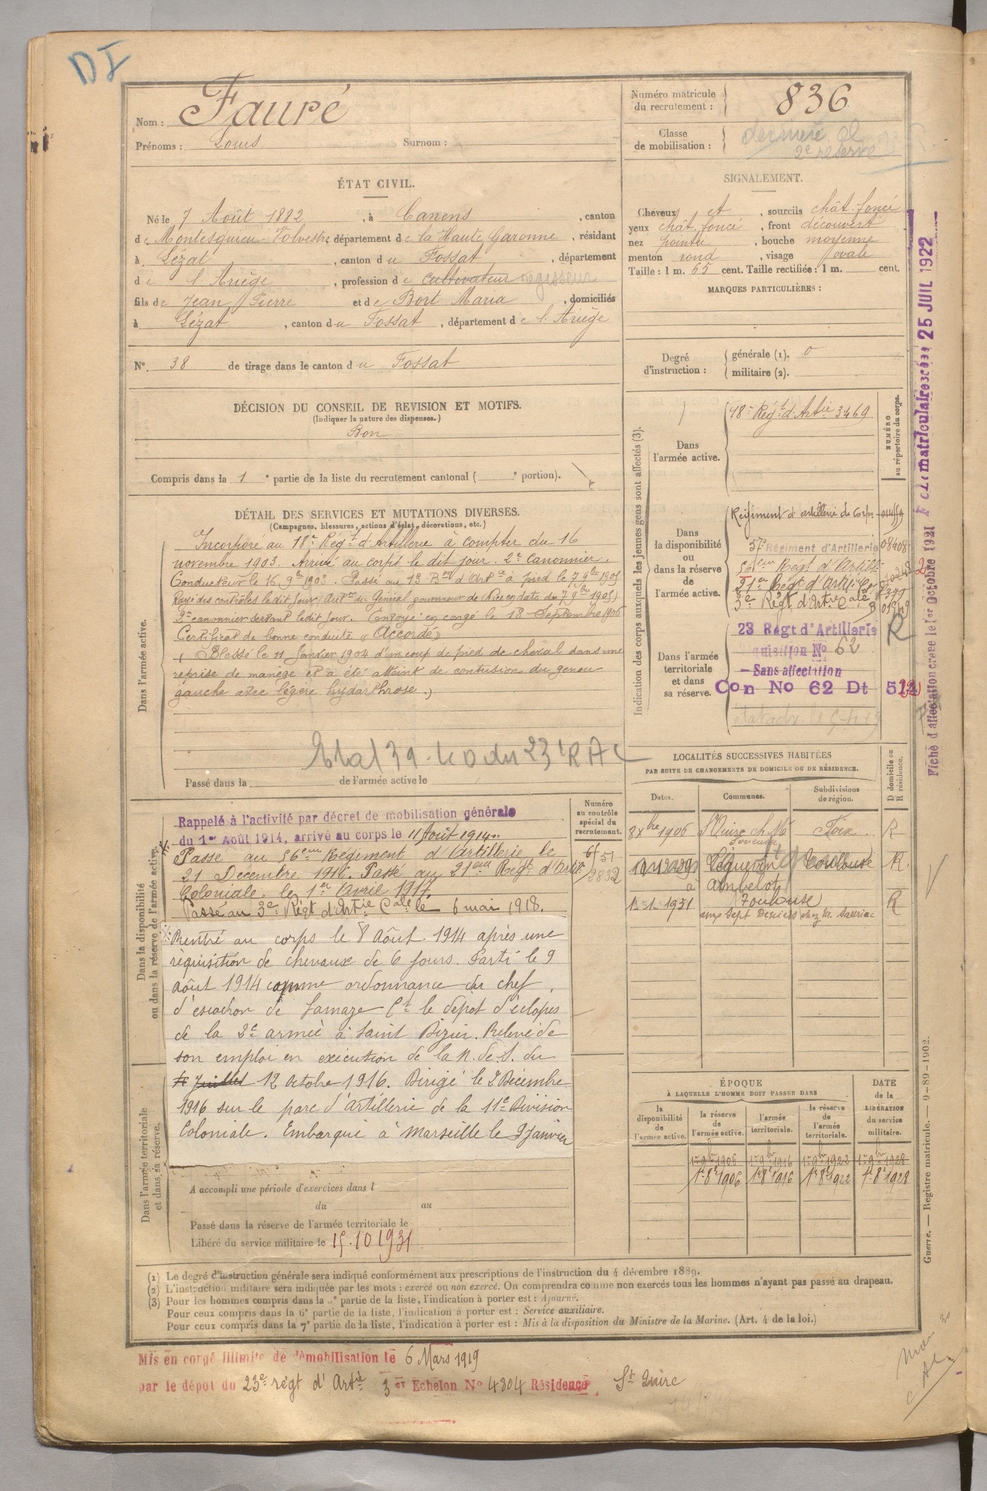 DI
Nom : Fauré
Prénoms : Louis Surnom :
Numéro matricule du recrutement : 836
Classe de mobilisation : dernière de 2e réserve
ÉTAT CIVIL.
Né le 7 Août 1882, à Canens, canton
de Montesquieu-Volvestre, département de la Haute Garonne, résidant
à Lézat, canton du Fossat, département
de l'Ariège, profession de Cultivateur
fils de Jean Pierre et de Bort Maria, domiciliés
à Lézat, canton du Fossat, département de l'Ariège
N° 38 de tirage dans le canton du Fossat
SIGNALEMENT.
Cheveux et, sourcils chât. foncé
yeux chât. foncé, front découvert
nez pointu, bouche moyenne
menton rond, visage ovale
Taille : 1 m. 65 cent. Taille rectifiée : 1 m. cent.
MARQUES PARTICULIÈRES :
Degré d'instruction : générale (1). 0
militaire (2).
DÉCISION DU CONSEIL DE REVISION ET MOTIFS.
(Indiquer la nature des dispenses.)
Bon
Compris dans la 1e partie de la liste du recrutement cantonal ( e portion).
DÉTAIL DES SERVICES ET MUTATIONS DIVERSES.
(Campagnes, blessures, actions d'éclat, décorations, etc.)
Dans l'armée active.
Incorporé au 18e Régt d'Artillerie à compter du 16
novembre 1903. Arrivé au corps le dit jour. 2e Canonnier
Conducteur le 16 9bre 1903. Passé au 1er Bon d'Arte à pied le 7 9bre 1905
Rayé des contrôles le dit jour
2e canonnier servant le dit jour. Envoyé en congé le 18 Septembre 1906
Certificat de bonne conduite "Accordé"
Blessé le 11 Janvier 1904 d'un coup de pied de cheval dans une
reprise de manège et a été atteint de contusion du genou
gauche avec légère hydarthrose.
Passé dans la de l'armée active le
Indication des corps auxquels les jeunes gens sont affectés (3).
NUMÉRO au répertoire du corps.
Dans l'armée active.
18e Régt d'Artie 3469
Dans la disponibilité ou dans la réserve de l'armée active.
Régiment d'artillerie de
57e Régiment d'Artillerie
3e Régt d'Artie Cale
Dans l'armée territoriale et dans sa réserve.
23 Régt d'Artillerie
N° 62
Sans affectation
Con No 62 Dt
R
25 JUIL 1922
LOCALITÉS SUCCESSIVES HABITÉES
PAR SUITE DE CHANGEMENTS DE DOMICILE OU DE RÉSIDENCE.
Dates. Communes. Subdivisions de région. D domicile ou R résidence.
8bre 1906 St Quirc Foix R
Toulouse R
1-1-1931 Toulouse R
Dans la disponibilité ou dans la réserve de l'armée active.
Numéro au contrôle spécial du recrutement.
Rappelé à l'activité par décret de mobilisation générale
du 1er Août 1914, arrivé au corps le 11 Août 1914.
Passé au 56eme Régiment d'Artillerie le
21 Décembre 1916. Passé au 21eme Régt d'Artie
Coloniale le 1er Avril 1917.
Passé au 3e Régt d'Artie Cale le 6 mai 1918.
Rentré au corps le 8 Août 1914 après une
réquisition de chevaux de 6 jours. Parti le 9
août 1914 comme ordonnance du chef
d'escadron de Lamaze Ct le dépôt d'éclopés
de la 2e armée à Saint Dizier. Relevé de
son emploi en exécution de la N. de S. du
juillet 12 Octobre 1916. Dirigé le 2 Décembre
1916 sur le parc d'Artillerie de la 11e Division
Coloniale. Embarqué à Marseille le 9 Janvier
Dans l'armée territoriale et dans sa réserve.
A accompli une période d'exercices dans l
du au
Passé dans la réserve de l'armée territoriale le
Libéré du service militaire le 15.10 1931
ÉPOQUE
À LAQUELLE L'HOMME DOIT PASSER DANS
DATE de la LIBÉRATION du service militaire.
la disponibilité de l'armée active. la réserve de l'armée active. l'armée territoriale. la réserve de l'armée territoriale.
1er 8bre 1906 1er 8bre 1916 1er 8bre 1922 1er 8bre 1928
(1) Le degré d'instruction générale sera indiqué conformément aux prescriptions de l'instruction du 4 décembre 1889.
(2) L'instruction militaire sera indiquée par les mots : exercé ou non exercé. On comprendra comme non exercés tous les hommes n'ayant pas passé au drapeau.
(3) Pour les hommes compris dans la e partie de la liste, l'indication à porter est : Ajourné.
Pour ceux compris dans la 6e partie de la liste, l'indication à porter est : Service auxiliaire.
Pour ceux compris dans la 7e partie de la liste, l'indication à porter est : Mis à la disposition du Ministre de la Marine. (Art. 4 de la loi.)
Guerre. — Registre matricule. — 9-89-1902.
Mis en congé illimité de démobilisation le 6 Mars 1919
par le dépôt du 23e régt d'Artie 3 er Echelon No 4304 Résidence St Quirc